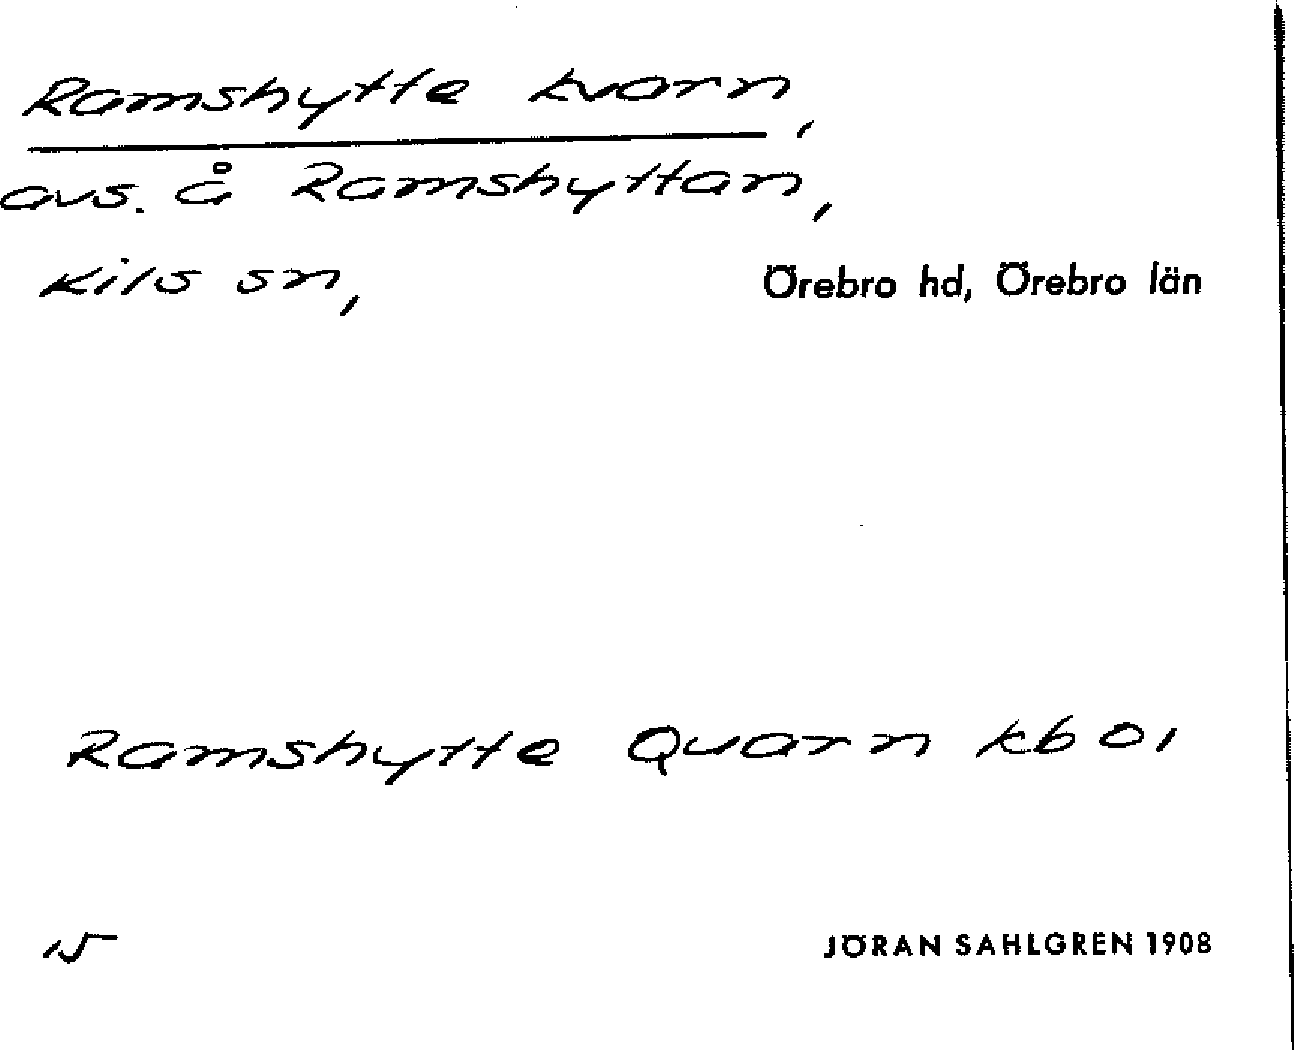 Ramshytte kvarn,
avs. å Ramshyttan,
Kils sn, Örebro hd, Örebro län
Ramshytte Quarn kb 01
15 JÖRAN SAHLGREN 1908